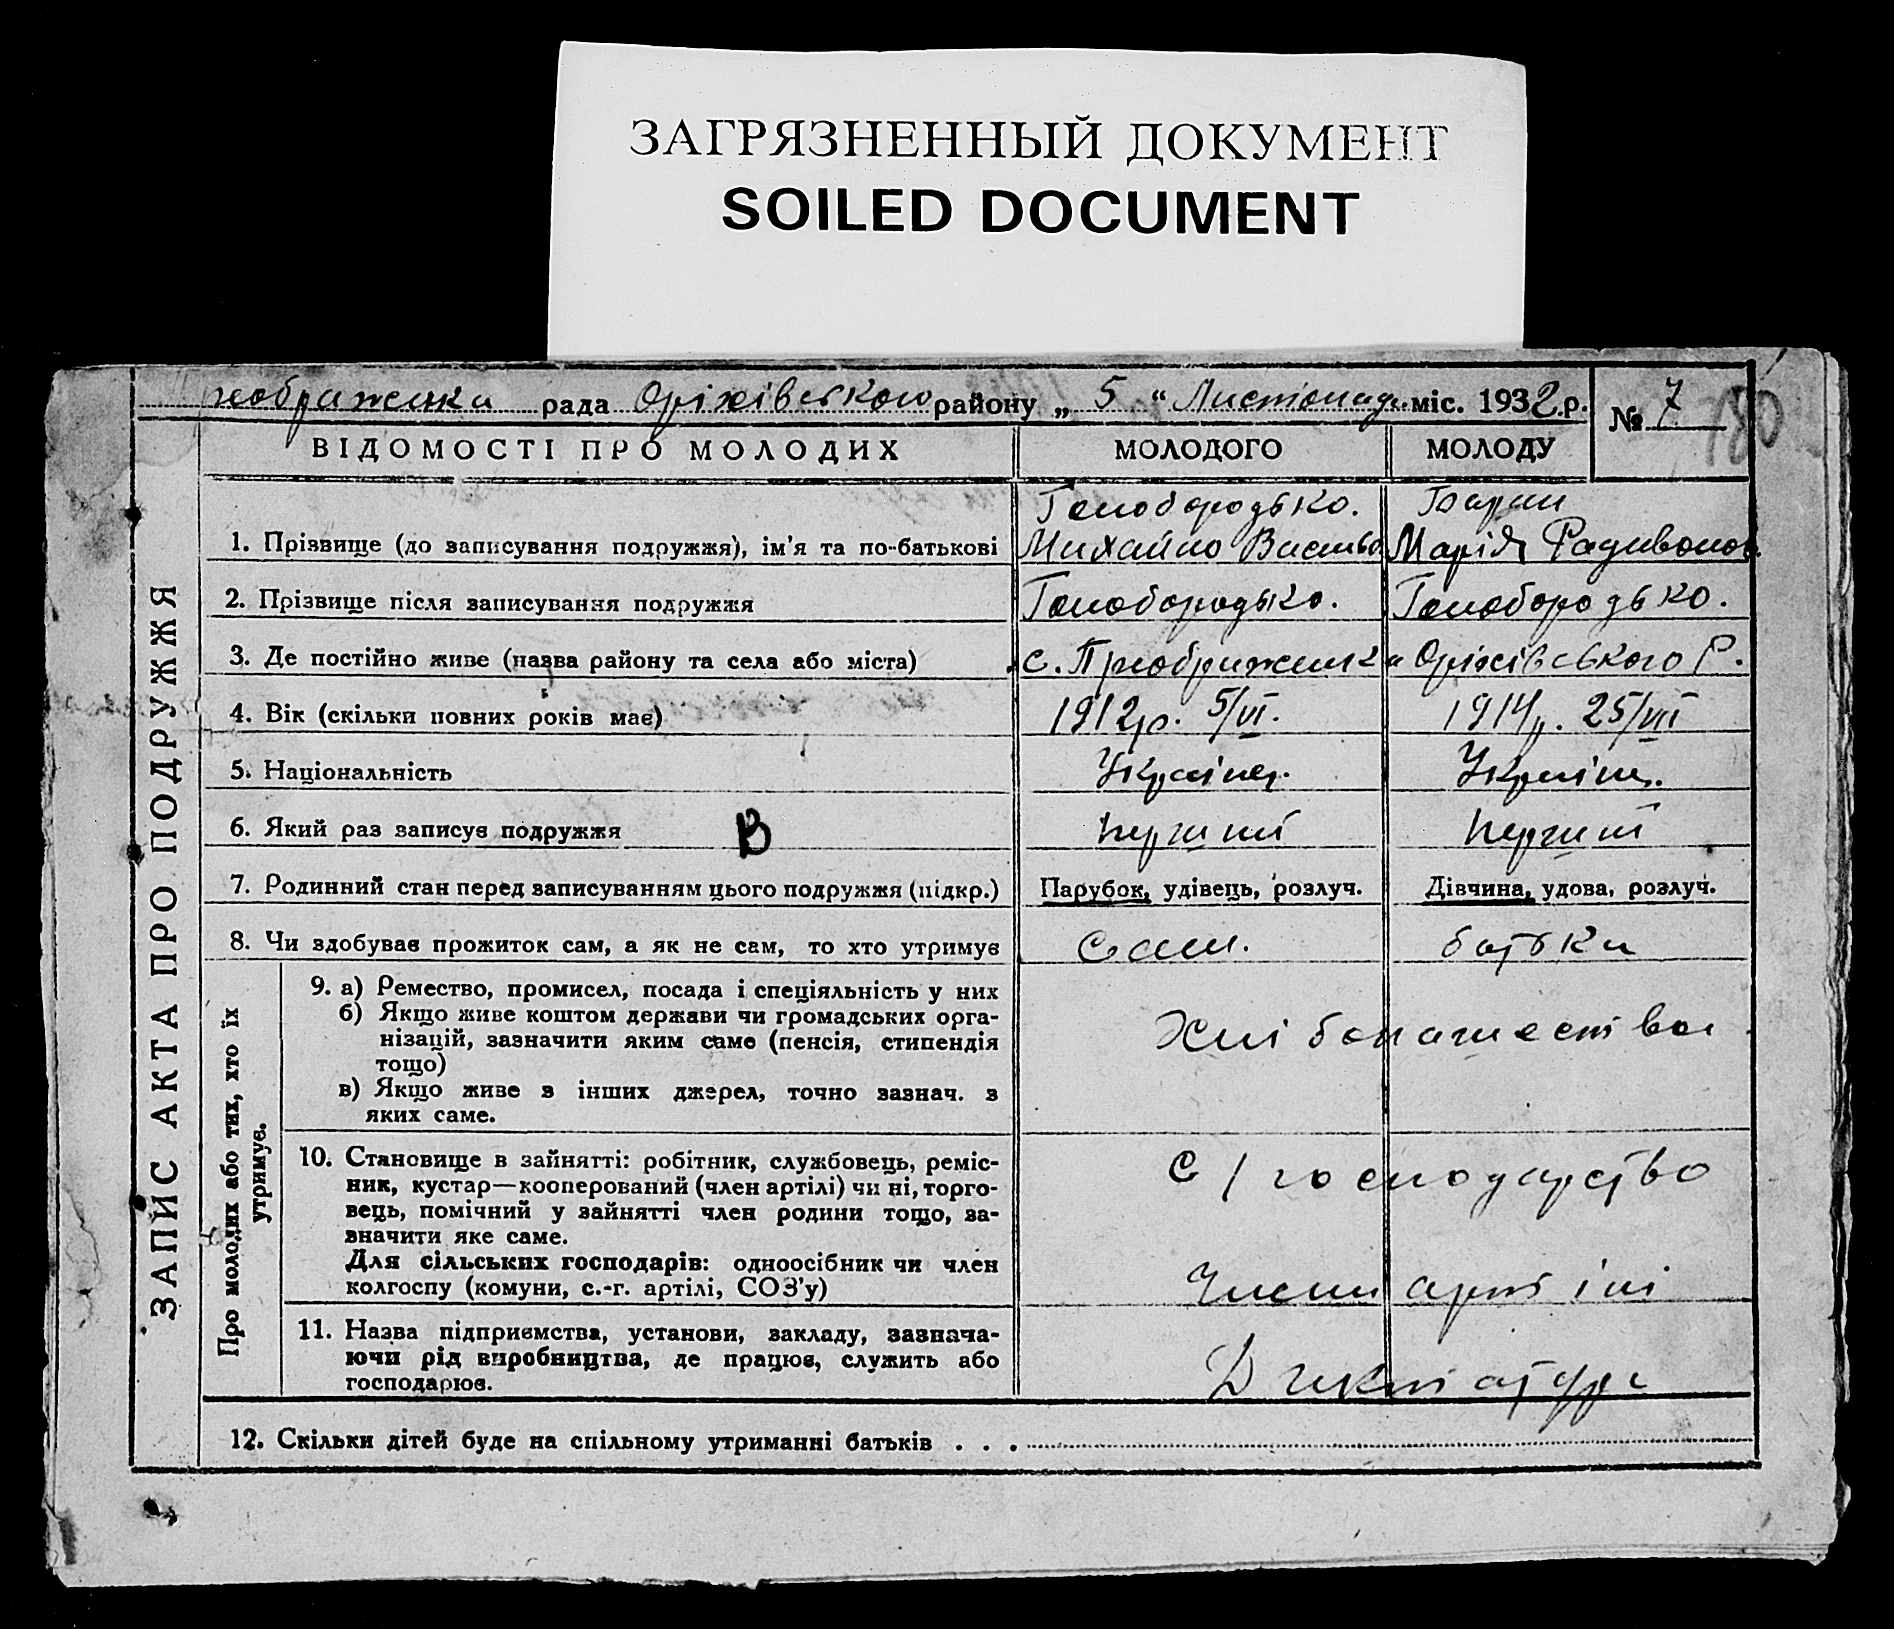 ЗАГРЯЗНЕННЫЙ ДОКУМЕНТ
SOILED DOCUMENT
рада Оріхівського району „ 5 “ Листопада міс. 1932 р. № 7
180
ВІДОМОСТІ ПРО МОЛОДИХ МОЛОДОГО МОЛОДУ
ЗАПИС АКТА ПРО ПОДРУЖЖЯ
Голобородько.
1. Прізвище (до записування подружжя), ім'я та по-батькові Михайло Василь Марія Радивонов.
2. Прізвище після записування подружжя Голобородько. Голобородько.
3. Де постійно живе (назва району та села або міста) с. Преображенка Оріхівського Р.
4. Вік (скільки повних років має) 1912 р. 5/VI. 1914 р. 25/VII
5. Національність Українц. Українц.
6. Який раз записує подружжя В перший перший
7. Родинний стан перед записуванням цього подружжя (підкр.) Парубок, удівець, розлуч. Дівчина, удова, розлуч.
8. Чи здобуває прожиток сам, а як не сам, то хто утримує Сам. батьки
Про молодих або тих, хто їх
утримує.
9. а) Ремество, промисел, посада і спеціяльність у них
б) Якщо живе коштом держави чи громадських орга-
нізацій, зазначити яким саме (пенсія, стипендія
тощо)
в) Якщо живе з інших джерел, точно зазнач. з
яких саме.
Хлібопашество
10. Становище в зайнятті: робітник, службовець, реміс-
ник, кустар—кооперований (член артілі) чи ні, торго-
вець, помічний у зайнятті член родини тощо, за-
значити яке саме.
Для сільських господарів: одноосібник чи член
колгоспу (комуни, с.-г. артілі, СОЗ'у)
С/господарство
Члени артілі
11. Назва підприємства, установи, закладу, зазнача-
ючи рід виробництва, де працює, служить або
господарює.
12. Скільки дітей буде на спільному утриманні батьків . . .